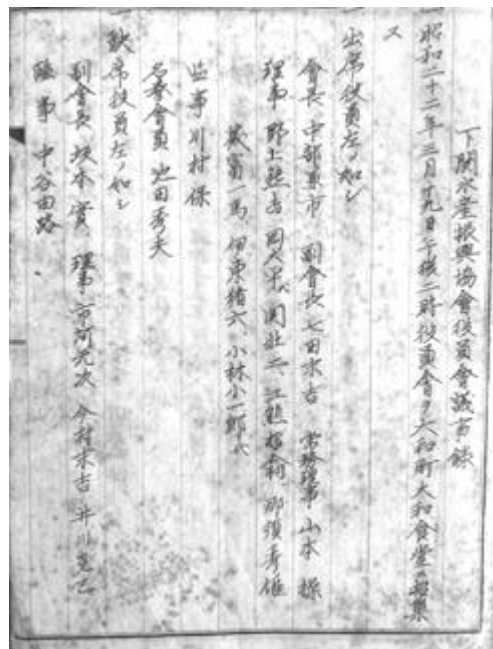 下関水産振興協會役員會議事録
一昭和二十二年三月十九日午後二時役員會ヲ大和町大和食堂ニ召集
ス
一出席役員左ノ如シ
會長 中部 市 副會長 七田末吉 常務理事 山本
理事 野上 吉 関 二、江 那須秀雄
富一馬 伊東猪六、小林小一郎代
監事 川村保
名誉會員 池田秀夫
一缺席役員左ノ如シ
副會長 坂本賞 理事 河元次 今村末吉 井川
監事 中谷由路